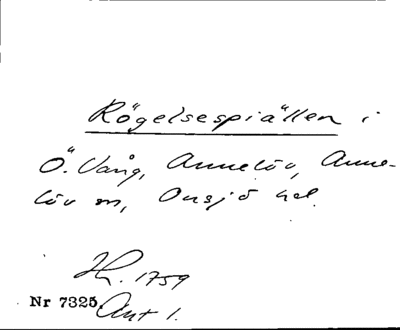 Rögelsespiällen i
Ö. Vång, Annelöv, Anne-
löv sn, Onsjö hd.
1759
Nr 7325. Akt 1.